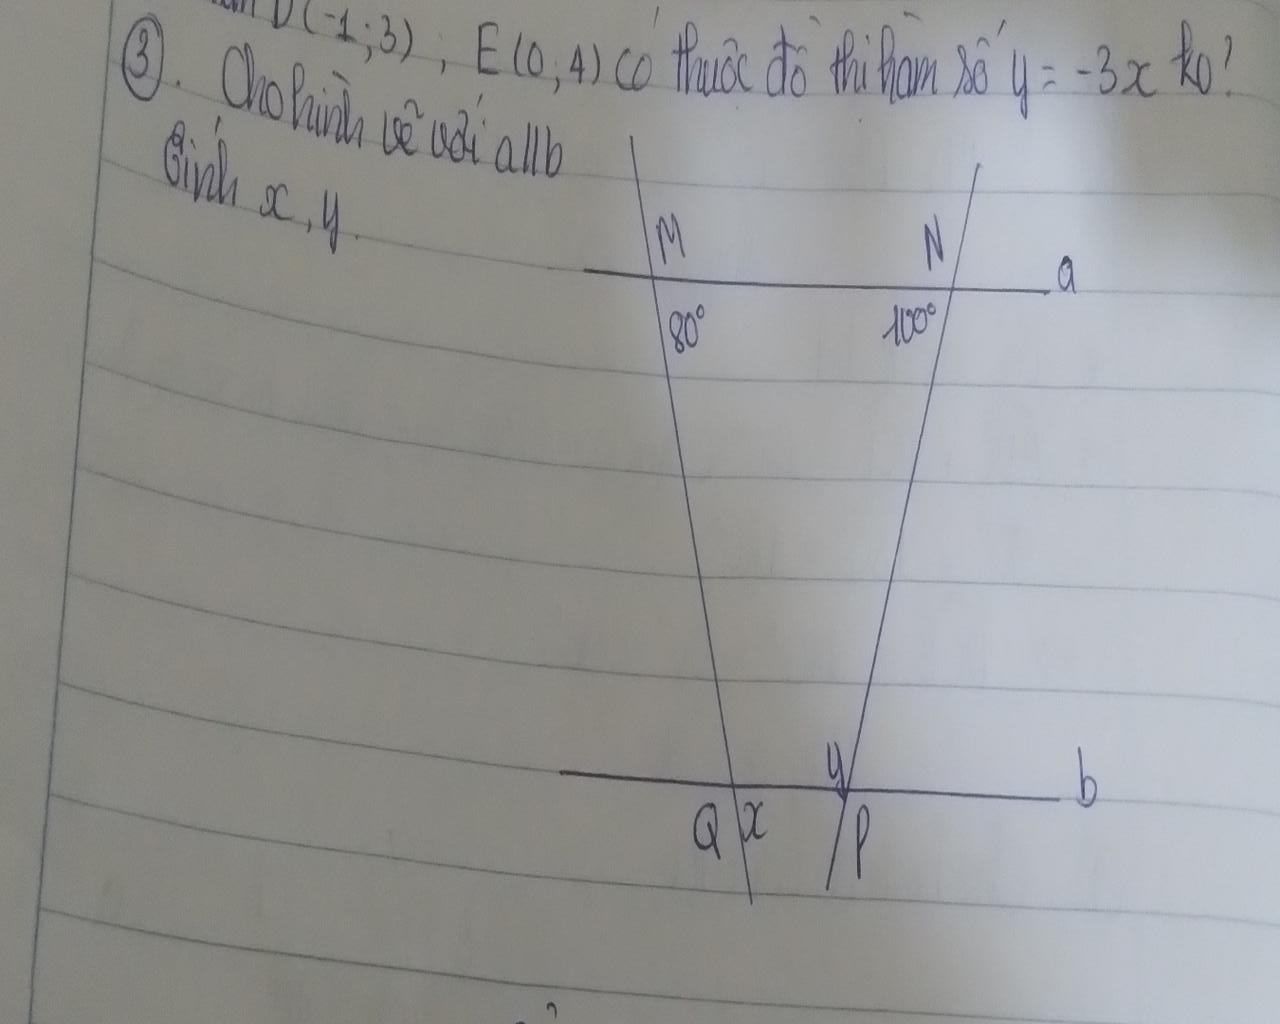 D(-1;3), E(0;4) có thuộc đồ thị hàm số y = -3x ko?
③. Cho hình vẽ với a//b
Tính x, y.
M N a
80° 100°
y b
Q x P